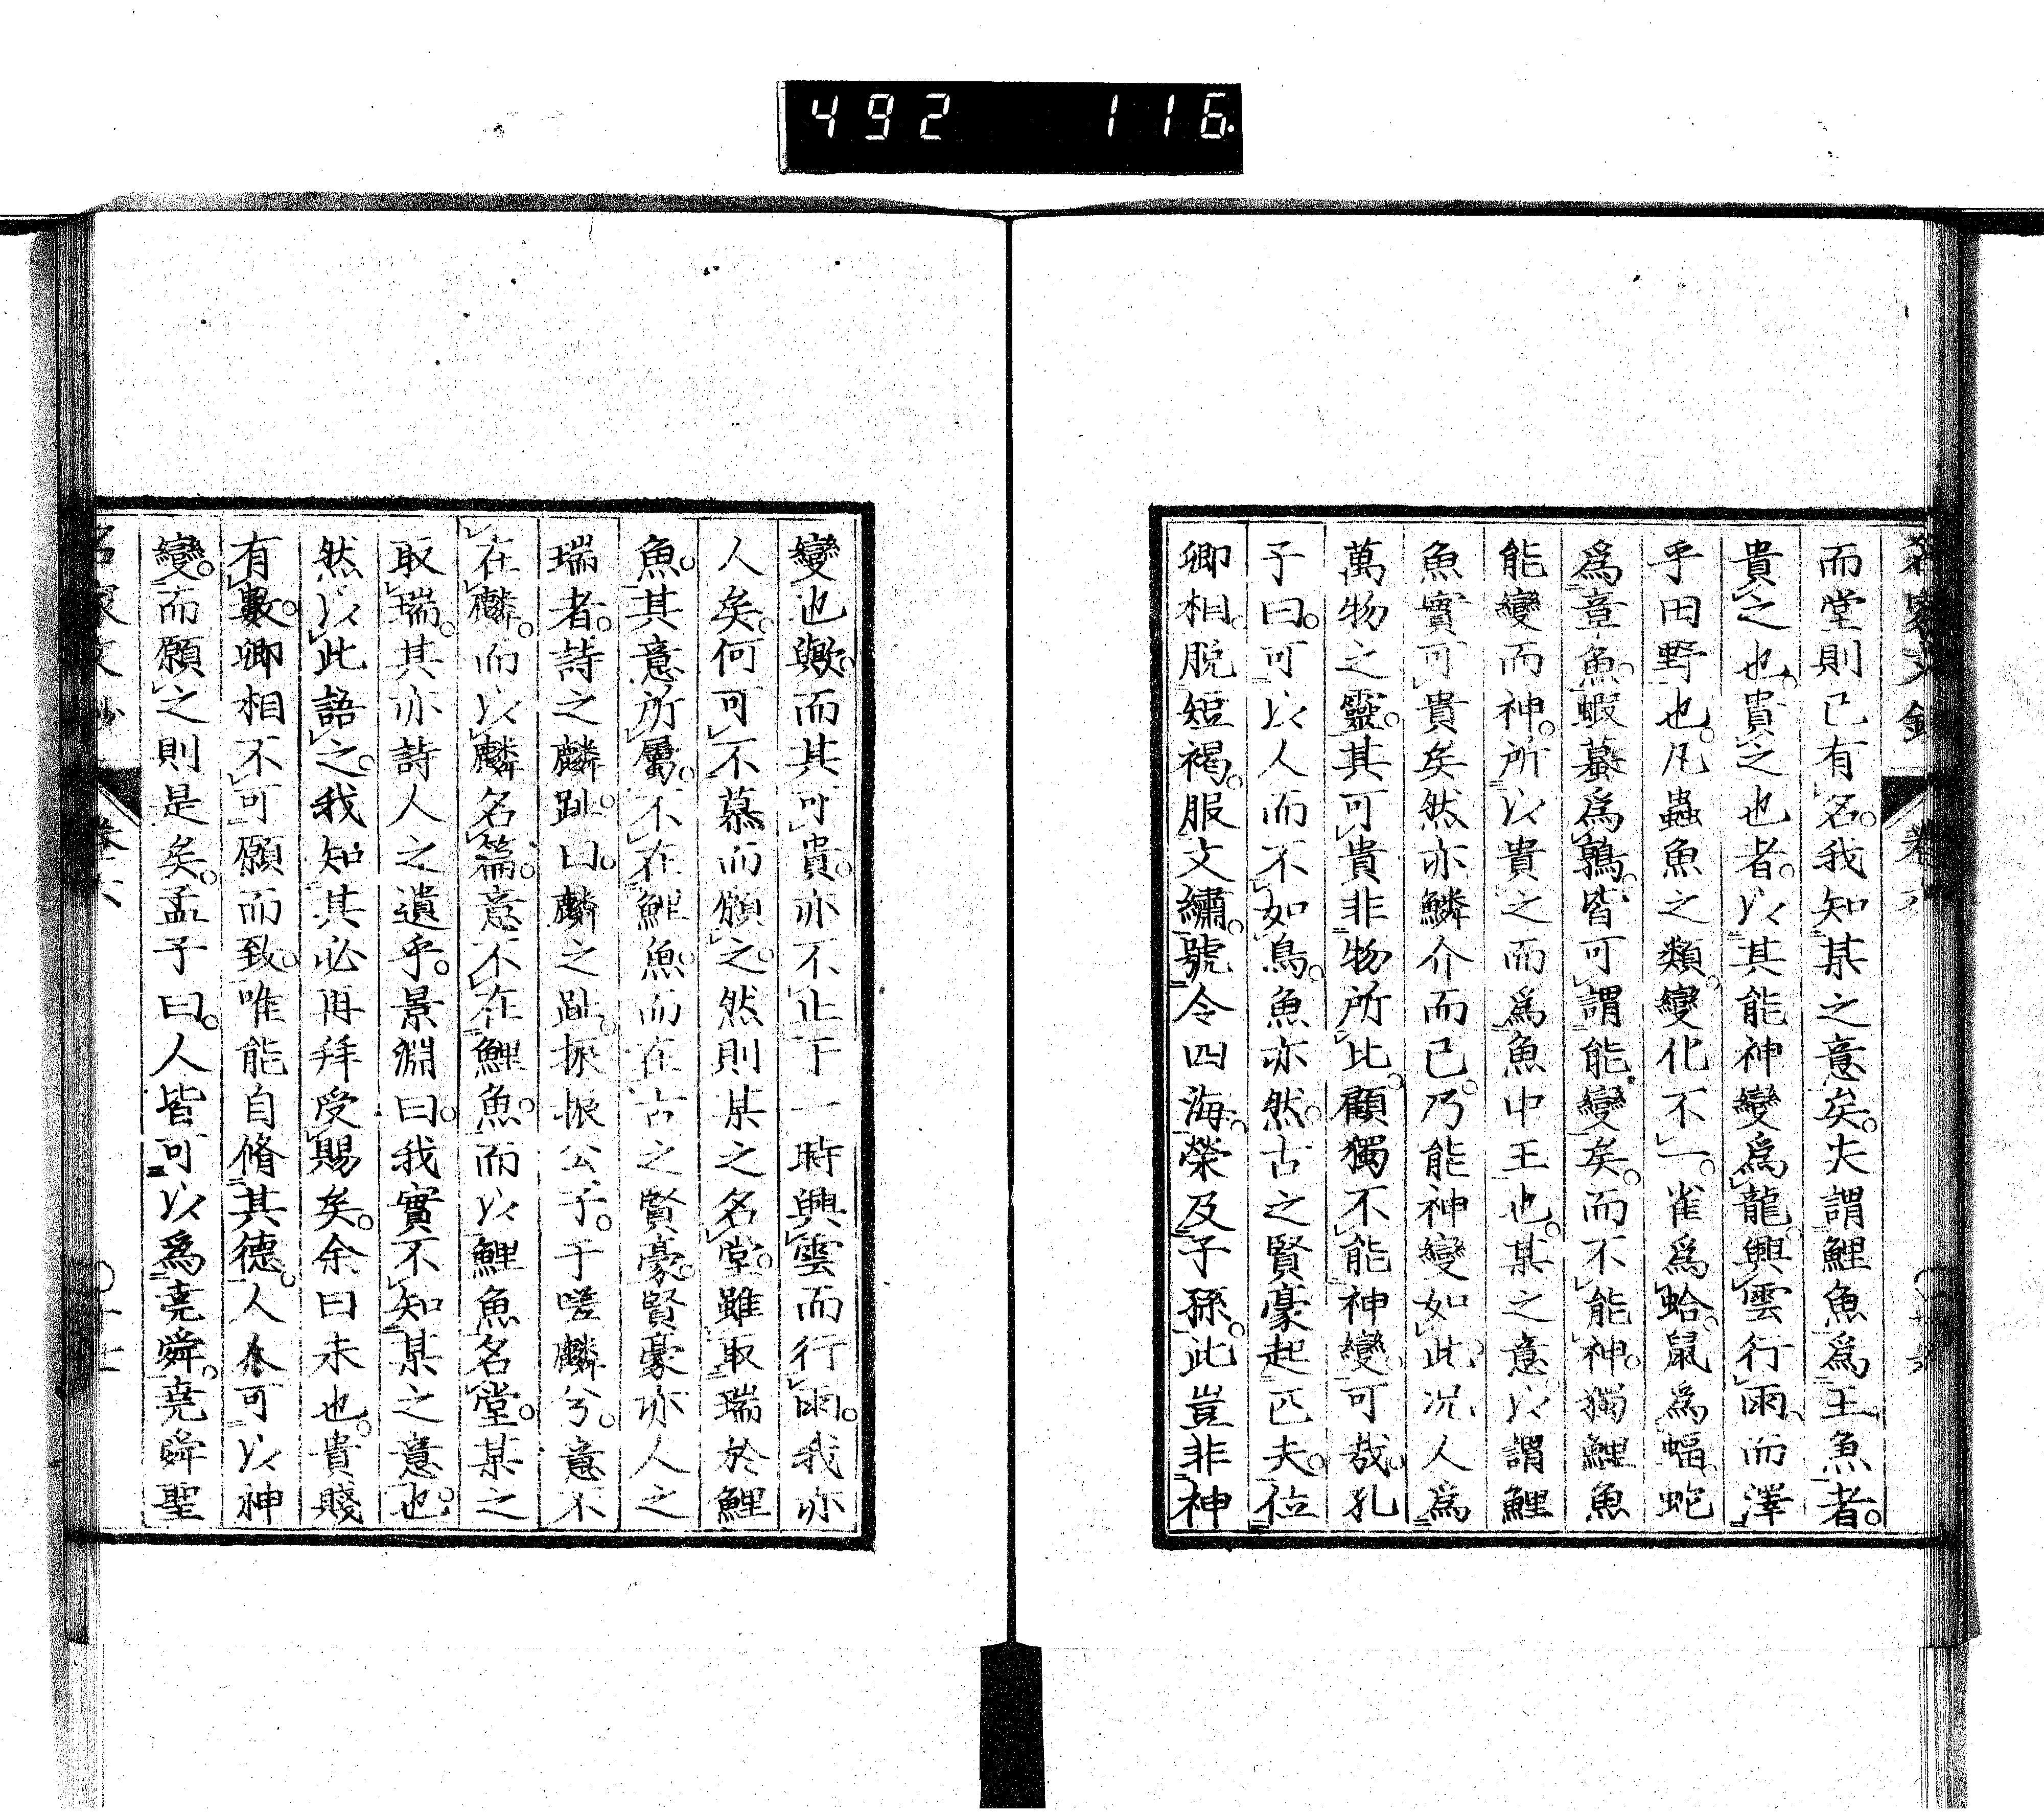 492 116
而堂則已有名。我知某之意矣。夫謂鯉魚爲王魚者。
貴之也。貴之也者。以其能神變爲龍。興雲行雨。而澤
乎田野也。凡蟲魚之類。變化不一。雀爲蛤。鼠爲蝠。蛇
爲章魚。蝦蟇爲鶉。皆可謂能變矣。而不能神。獨鯉魚
能變而神。所以貴之而爲魚中王也。某之意以謂鯉
魚實可貴矣。然亦鱗介而已。乃能神變如此。况人爲
萬物之靈。其可貴非物所比。顧獨不能神變可哉。孔
子曰。可以人而不如鳥。魚亦然。古之賢豪起匹夫。位
卿相。脱短褐。服文繡。號令四海。榮及子孫。此豈非神
變也歟。而其可貴。亦不止下一時興雲而行雨。我亦
人矣。何可不慕而願之。然則某之名堂。雖取瑞於鯉
魚。其意所屬。不在鯉魚。而在古之賢豪。賢豪亦人之
瑞者。詩之麟趾。曰。麟之趾。振振公子。于嗟麟兮。意不
在麟。而以麟名篇。意不在鯉魚。而以鯉魚名堂。某之
取瑞。其亦詩人之遺乎。景淵曰。我實不知某之意也。
然以此語之。我知其必再拜受賜矣。余曰未也。貴賤
有數。卿相不可願而致。唯能自脩其德。人人可以神
變。而願之則是矣。孟子曰。人皆可以爲堯舜。堯舜聖
名家文抄 卷六